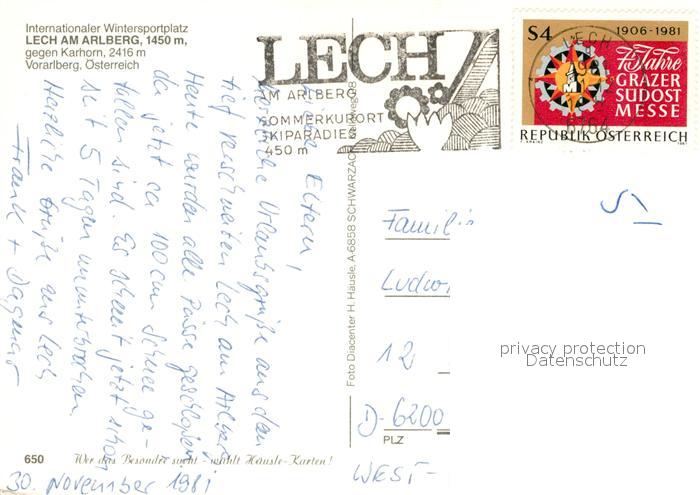 Internationaler Wintersportplatz
LECH AM ARLBERG, 1450 m,
gegen Karhorn, 2416 m
Vorarlberg, Österreich
LECH
AM ARLBERG
SOMMERKURORT
SKIPARADIES
1450 m
S4 1906-1981
75 Jahre
GRAZER
SÜDOST
MESSE
REPUBLIK ÖSTERREICH
LECH
Liebe Eltern!
herzliche Urlaubsgrüße aus dem
tief verschneiten Lech am Arlberg
Heute wurden alle Pässe geschlossen
da jetzt ca 100 cm Schnee ge-
fallen sind. Es schneit jetzt schon
seit 5 Tagen ununterbrochen
Herzliche Grüße aus Lech
Frank + Dagmar
Foto Diacenter H. Häusle, A-6858 SCHWARZACH
Familie
Ludwi
12
D-6200
PLZ
WEST-
privacy protection
Datenschutz
650 Wer das Besondre sucht - wählt Häusle-Karten!
30. November 1981